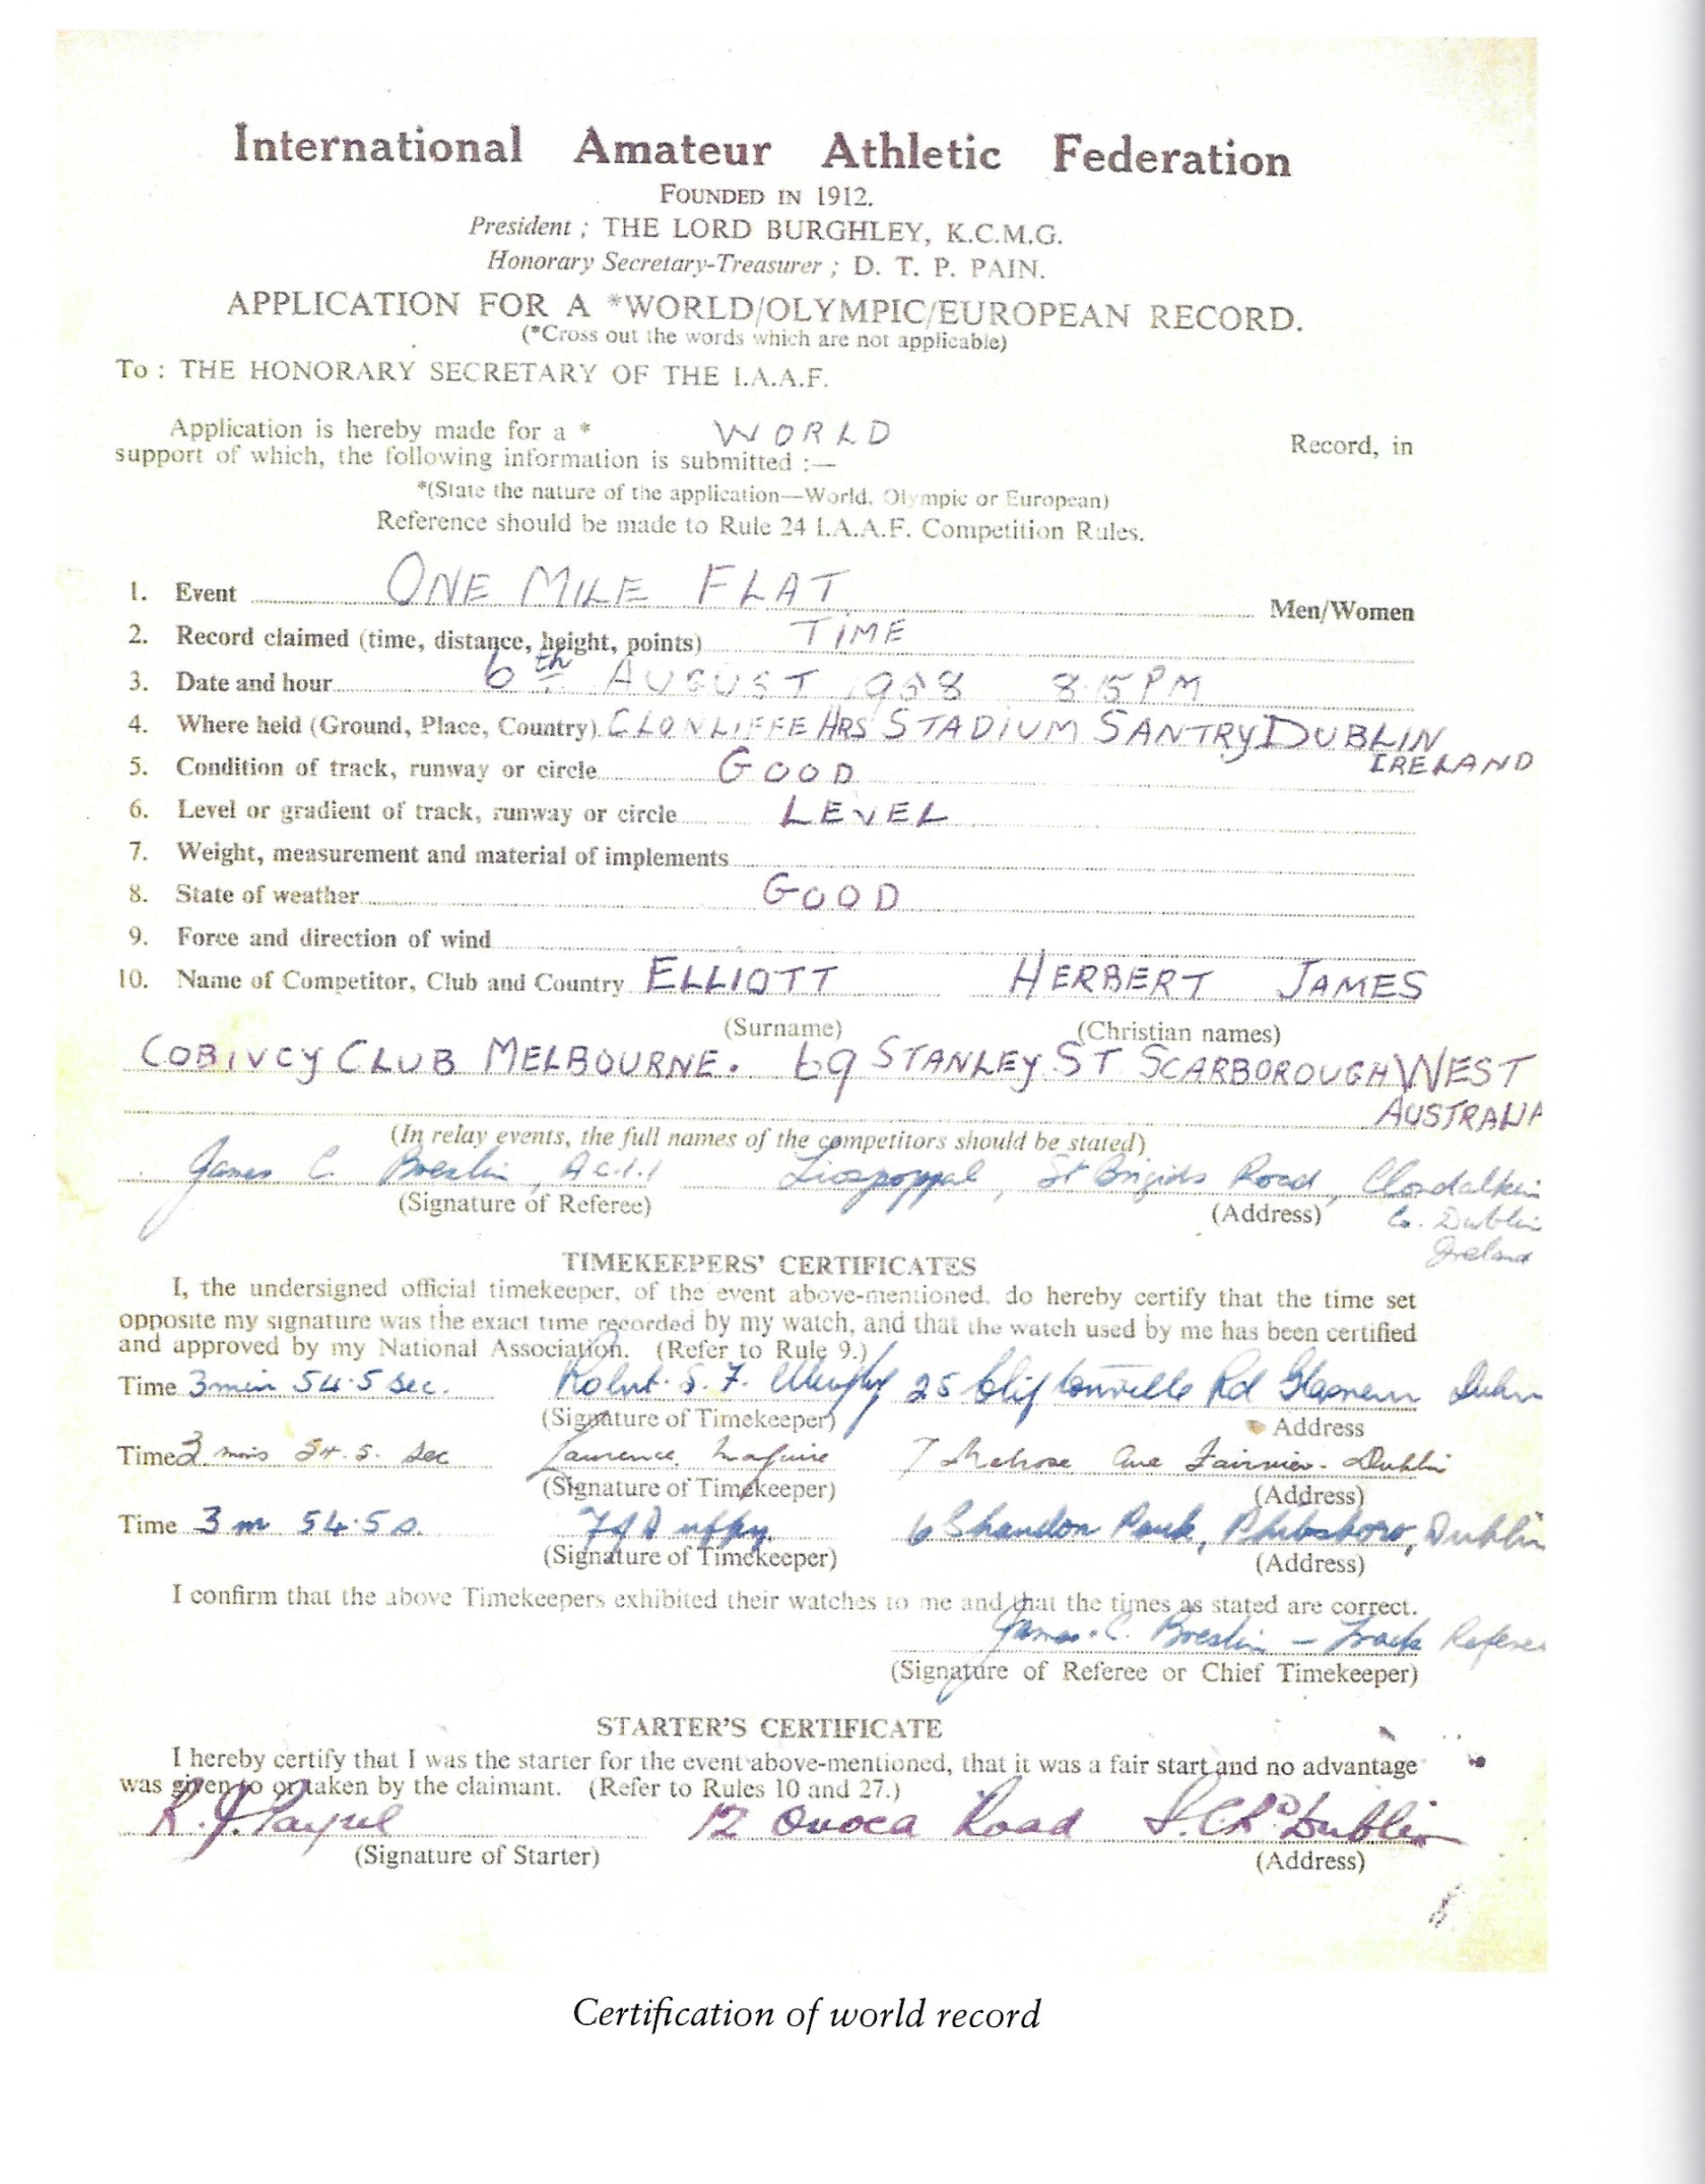 International Amateur Athletic Federation
FOUNDED IN 1912.
President ; THE LORD BURGHLEY, K.C.M.G.
Honorary Secretary-Treasurer ; D. T. P. PAIN.
APPLICATION FOR A *WORLD/OLYMPIC/EUROPEAN RECORD.
(*Cross out the words which are not applicable)
To : THE HONORARY SECRETARY OF THE I.A.A.F.
Application is hereby made for a * WORLD Record, in
support of which, the following information is submitted :—
*(State the nature of the application—World, Olympic or European)
Reference should be made to Rule 24 I.A.A.F. Competition Rules.
1. Event ONE MILE FLAT Men/Women
2. Record claimed (time, distance, height, points) TIME
3. Date and hour 6th AUGUST 1958 8.15 PM
4. Where held (Ground, Place, Country) CLONLIFFE HRS STADIUM SANTRY DUBLIN
IRELAND
5. Condition of track, runway or circle GOOD
6. Level or gradient of track, runway or circle LEVEL
7. Weight, measurement and material of implements
8. State of weather GOOD
9. Force and direction of wind
10. Name of Competitor, Club and Country ELLIOTT HERBERT JAMES
(Surname) (Christian names)
COBIVCY CLUB MELBOURNE. 69 STANLEY ST SCARBOROUGH WEST
AUSTRALIA
(In relay events, the full names of the competitors should be stated)
James C. Breslin, A.C.I.I Liospoppal, St Brigids Road, Clondalkin
(Signature of Referee) (Address) Co. Dublin
Ireland
TIMEKEEPERS' CERTIFICATES
I, the undersigned official timekeeper, of the event above-mentioned, do hereby certify that the time set
opposite my signature was the exact time recorded by my watch, and that the watch used by me has been certified
and approved by my National Association. (Refer to Rule 9.)
Time 3 min 54.5 sec. Robert. S. F. Murphy 25 Cliftonville Rd Glasnevin
(Signature of Timekeeper) Address
Time 3 mins 54.5. sec Laurence Maguire 7 Melrose Ave Fairview. Dublin
(Signature of Timekeeper) (Address)
Time 3 m 54.5 s. Duffy. 6 Shandon Park, Phibsboro, Dublin
(Signature of Timekeeper) (Address)
I confirm that the above Timekeepers exhibited their watches to me and that the times as stated are correct.
James. C. Breslin – Track Referee
(Signature of Referee or Chief Timekeeper)
STARTER'S CERTIFICATE
I hereby certify that I was the starter for the event above-mentioned, that it was a fair start and no advantage
was given to or taken by the claimant. (Refer to Rules 10 and 27.)
R. J. Payne 12 Ovoca Road S.C.Rd Dublin
(Signature of Starter) (Address)
Certification of world record